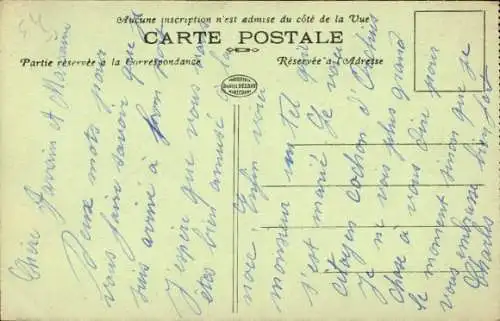 Aucune inscription n'est admise du côté de la Vue
CARTE POSTALE
Partie réservée à la Correspondance
Réservée à l'Adresse
Chère Parrain et Marraine
Deux mots pour
vous faire savoir que je
suis arrivé à bon
J'espère que vous vous
êtes bien amusé
noce. Enfin voici
monsieur un tel qui
s'est marié. Je vois
citoyen cochon d'
Je ne vois plus grand
chose à vous dire pour
le moment sinon que je
vous embrasse bien fort
Charles